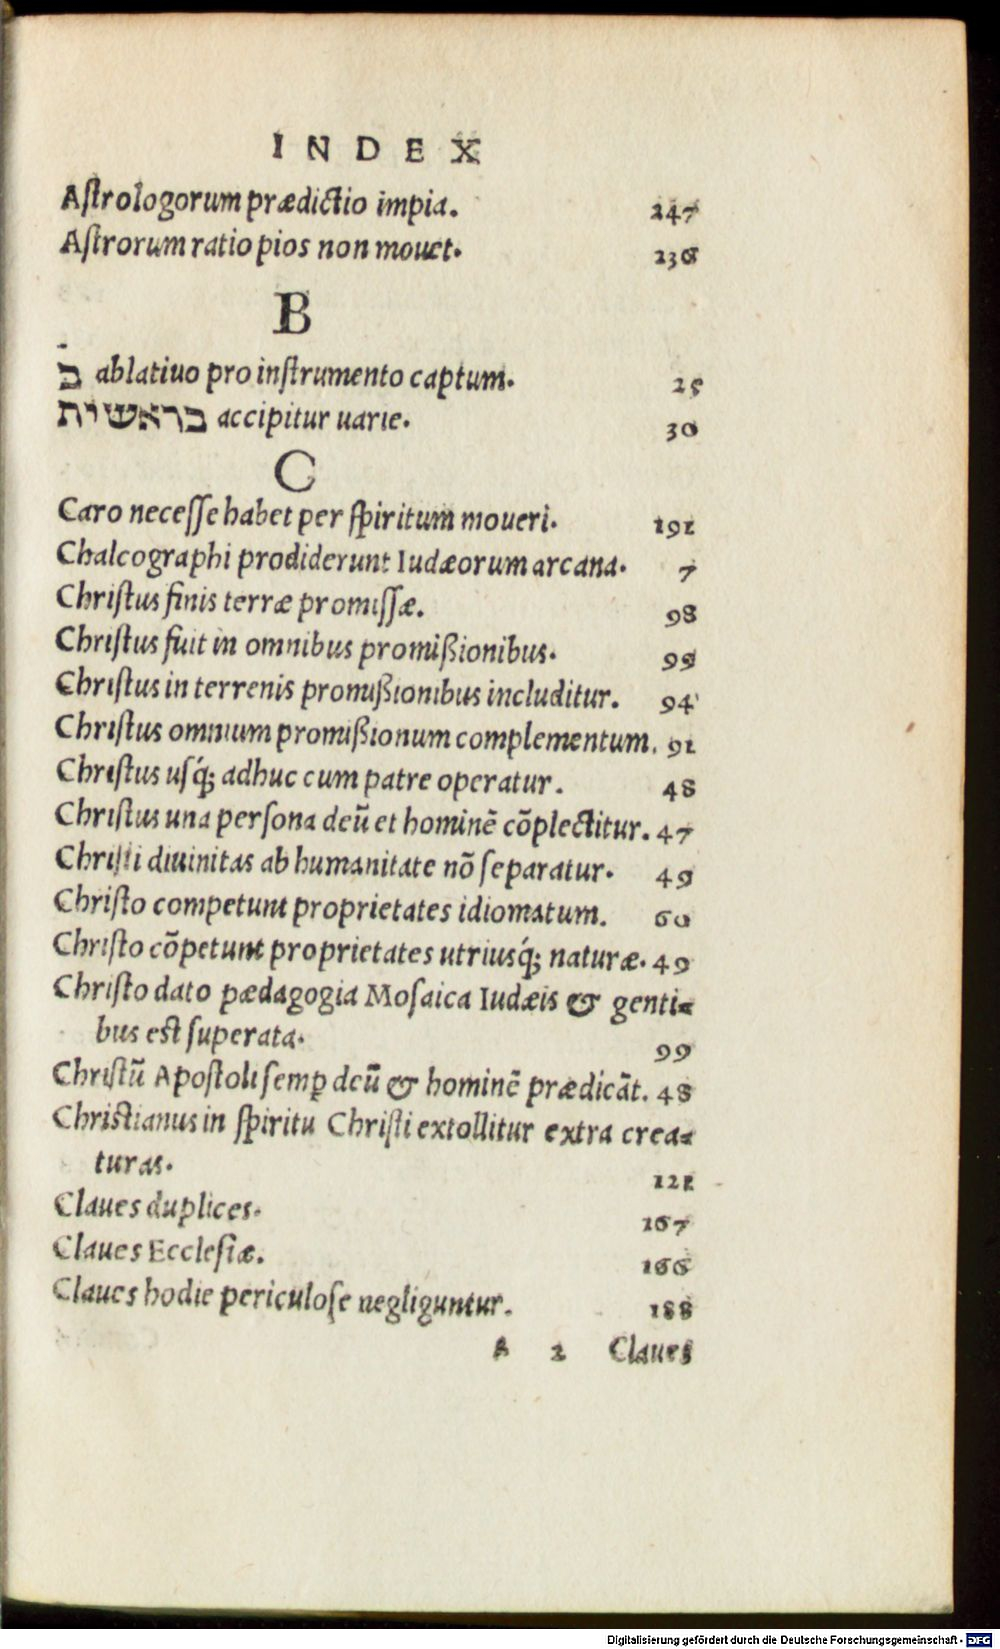 INDEX
Aſtrologorum prædictio impia. 247
Aſtrorum ratio pios non mouet. 236
B
בֿ ablatiuo pro inſtrumento captum. 25
בראשית accipitur uarie. 30
C
Caro neceſſe habet per ſpiritum moueri. 191
Chalcographi prodiderunt Iudæorum arcana. 7
Chriſtus finis terræ promiſſæ. 98
Chriſtus fuit in omnibus promißionibus. 99
Chriſtus in terrenis promißionibus includitur. 94
Chriſtus omnium promißionum complementum. 91
Chriſtus uſq́; adhuc cum patre operatur. 48
Chriſtus una perſona deũ et hominẽ cõplectitur. 47
Chriſti diuinitas ab humanitate nõ ſeparatur. 49
Chriſto competunt proprietates idiomatum. 60
Chriſto cõpetunt proprietates utriusq́; naturæ. 49
Chriſto dato pædagogia Moſaica Iudæis & genti-
bus eſt ſuperata. 99
Chriſtũ Apoſtoli ſemꝑ deũ & hominẽ prædicãt. 48
Chriſtianus in ſpiritu Chriſti extollitur extra crea-
turas. 121
Claues duplices. 167
Claues Eccleſiæ. 166
Claues hodie periculoſe negliguntur. 188
A 2 Claues
Digitalisierung gefördert durch die Deutsche Forschungsgemeinschaft - DFG